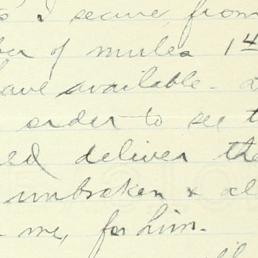 I secure from
of mules 14
have available.
order to see t
ed deliver the
unbroken & al
me, for him.